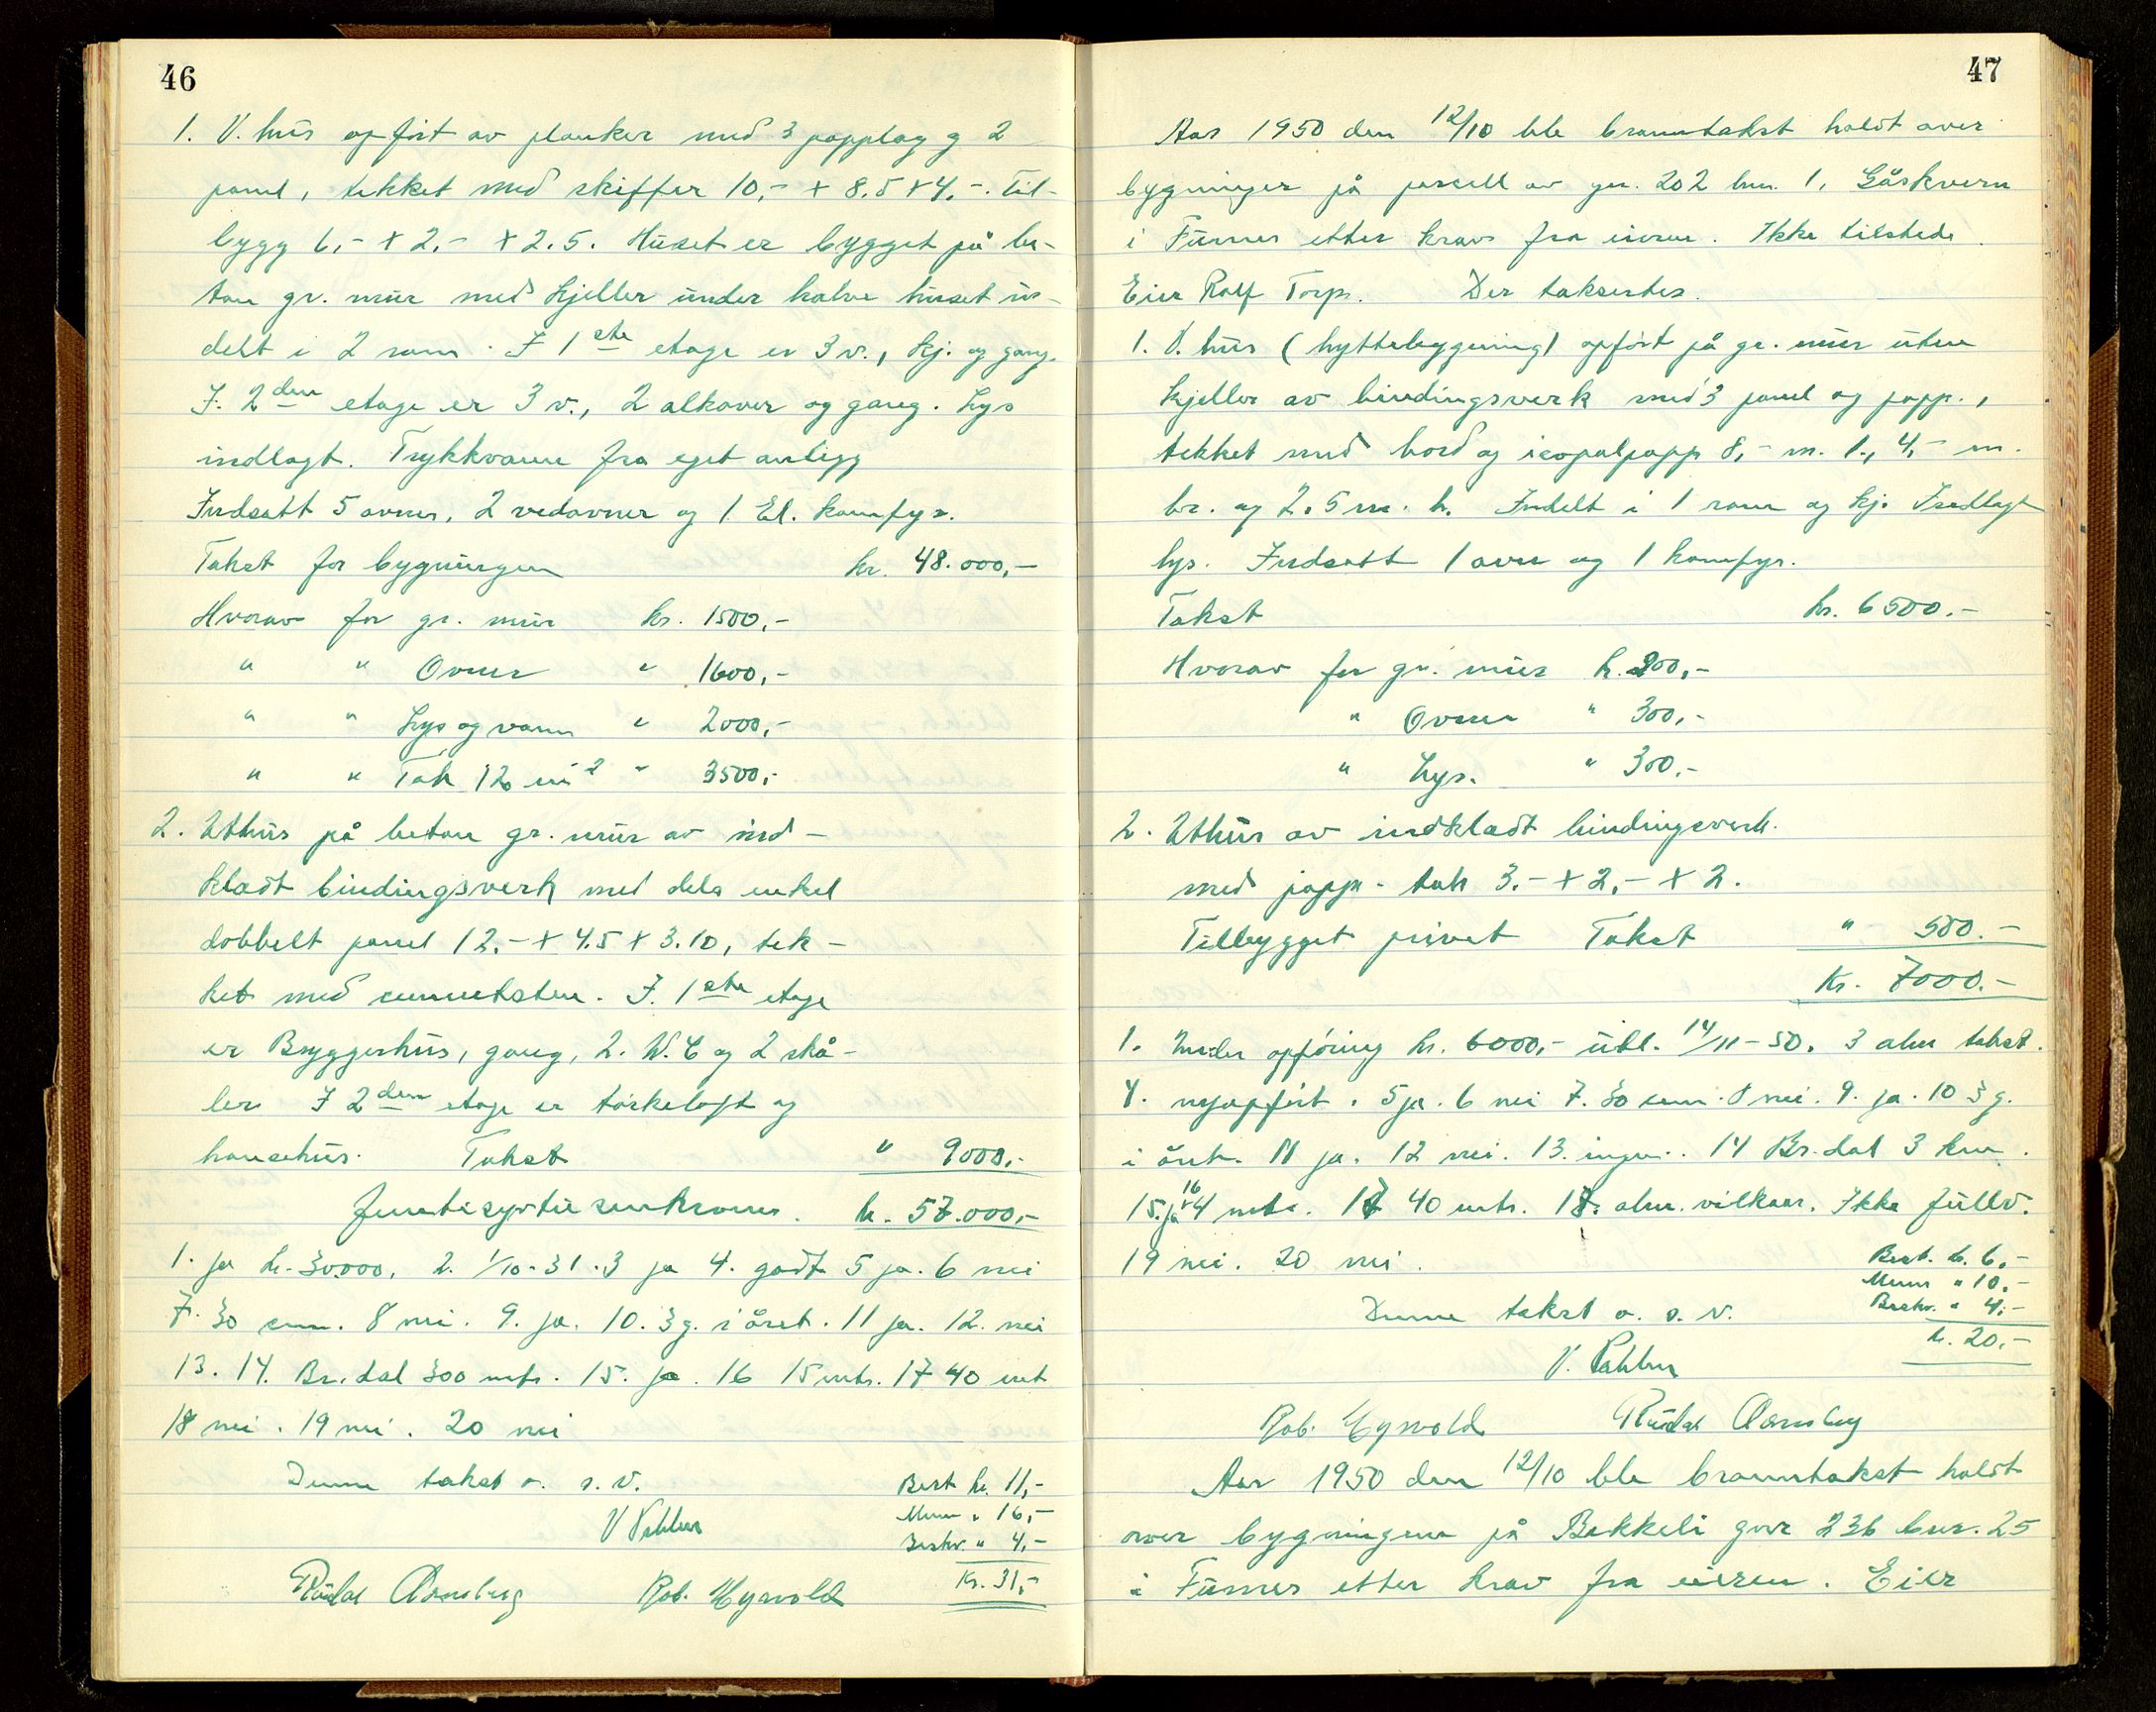 46
1. V. hus opført av planker med 3 papplag og 2
panel, tekket med skiffer 10,- x 8,5 x 4,-. Til-
bygg 6,- x 2,- x 2.5. Huset er bygget på be-
ton gr. mur med kjeller under halve huset in-
delt i 2 rom. I 1ste etage er 3 v., kj. og gang.
I. 2den etage er 3 v., 2 alkover og gang. Lys
indlagt. Trykkvann fra eget anlegg
Indsatt 5 ovner, 2 vedovner og 1 El. komfyr.
Takst for bygningen kr. 48.000,-
Hvorav for gr. mur kr. 1500,-
" " Ovner " 1600,-
" " Lys og vann " 2000,-
" " Tak 12 m2 " 3500,-
2. Uthus på beton gr. mur av ind-
kladt bindingsverk med dels enkel
dobbelt panel 12,- x 4.5 x 3.10, tek-
ket med cementsten. I. 1ste etage
er Bryggerhus, gang, 2. W.C og 2 skå-
ler I 2den etage er tørkeloft og
hønsehus. Takst " 9000,-
kr. 57.000,-
1. ja kr. 30.000. 2. 1/10-31. 3 ja 4. godt 5 ja. 6 nei
7. 30 cm. 8 nei. 9. ja. 10. 3 g. i året. 11 ja. 12. nei
13. 14. Br.dal 300 mtr. 15. ja. 16 15 mtr. 17 40 mt
18 nei. 19 nei. 20 nei
Denne takst o. s. v.
Best kr. 11,-
" 16,-
Beskr. " 4,-
Kr. 31,-
Rob. Myrvold
47
Aar 1950 den 12/10 ble branntakst holdt over
bygninger på parsell av gn. 202 bnr. 1, Gåskvern
i Furnes etter krav fra eieren. Ikke tilstede.
Eier Rolf Torp. Der taksertes.
1. V. hus (hyttebygning) opført på gr. mur uten
kjeller av bindingsverk med 3 panel og papp.,
tekket med bord og icopalpapp 8,- m. l., 4,- m.
br. og 2.5 m. h. Indelt i 1 rom og kj. Indlagt
lys. Indsatt 1 ovn og 1 komfyr.
Takst kr. 6500.-
Hvorav for gr. mur kr. 200,-
" Ovner " 300,-
" Lys. " 300.-
2. Uthus av indkladt bindingsverk.
med papp-tak 3.- x 2,- x 2.
Tilbygget privet Takst " 500.-
Kr. 7000.-
1. Under opføring kr. 6000,- utl. 14/11-50. 3 alm takst.
4. nyopført. 5 ja. 6 nei 7. 30 cm. 8 nei. 9. ja. 10 3 g.
i året. 11 ja. 12 nei. 13. ingen. 14 Br.dal 3 km.
15. ja 16 4 mtr. 17 40 mtr. 18. alm. vilkaar. Ikke fullv.
19 nei. 20 nei.
Best. kr. 6,-
" 10,-
Beskr. " 4,-
kr. 20,-
Denne takst o. s. v.
Rob. Myrvold
Aar 1950 den 12/10 ble branntakst holdt
over bygningene på Bakkeli gnr 236 bnr. 25
i Furnes etter krav fra eieren. Eier